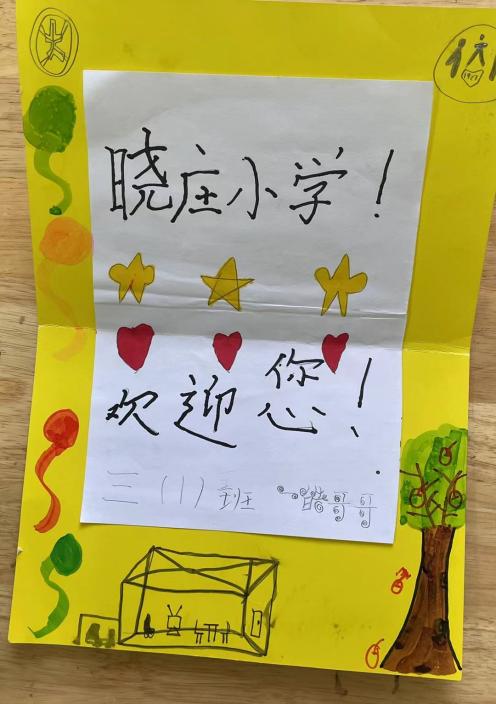 晓庄小学！
欢迎您！
三（1）班